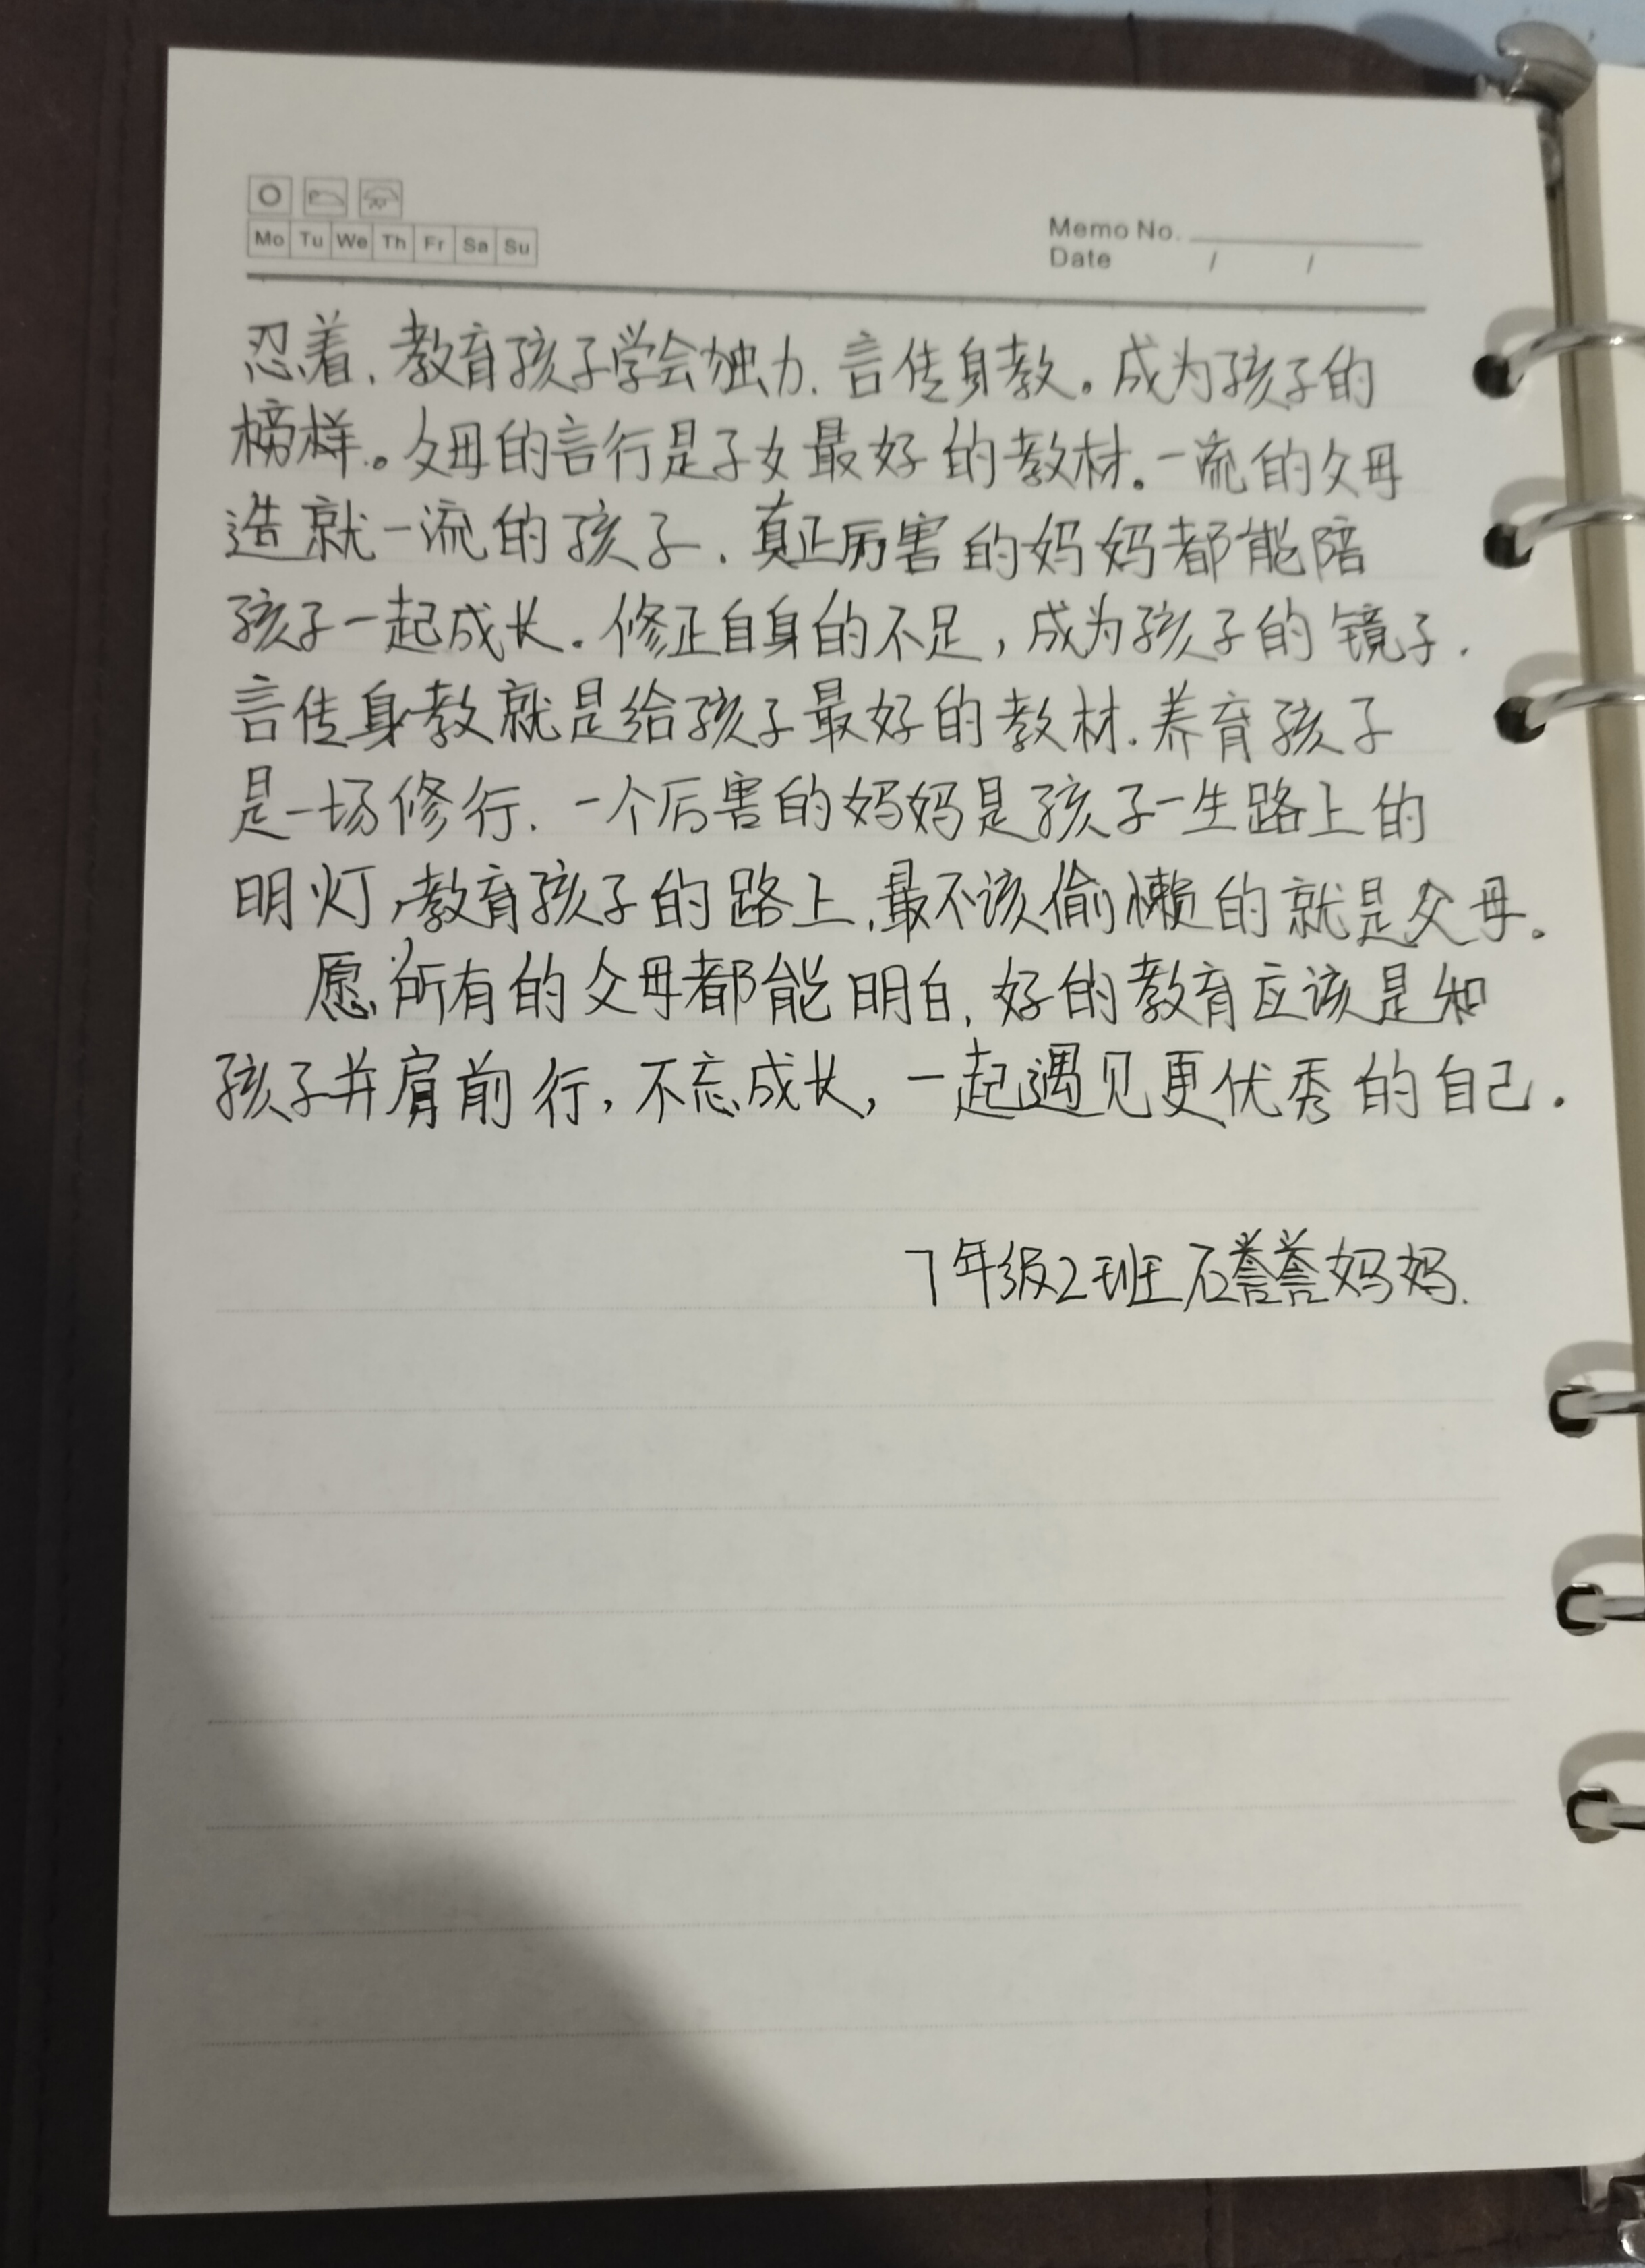 Mo Tu We Th Fr Sa Su
Memo No.
Date / /
忍着,教育孩子学会独力,言传身教。成为孩子的
榜样。父母的言行是子女最好的教材。一流的父母
造就一流的孩子,真正厉害的妈妈都能陪
孩子一起成长.修正自身的不足,成为孩子的镜子.
言传身教就是给孩子最好的教材.养育孩子
是一场修行.一个厉害的妈妈是孩子一生路上的
明灯,教育孩子的路上,最不该偷懒的就是父母。
愿所有的父母都能明白,好的教育应该是和
孩子并肩前行,不忘成长,一起遇见更优秀的自己.
7年级2班石誉誉妈妈.